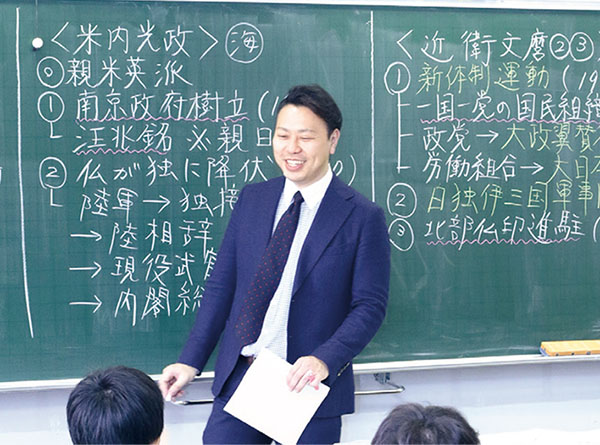 ＜米内光政＞ ㊤海
⓪親米英派
①南京政府樹立(1
└汪兆銘 ※親日
②仏が独に降伏
陸軍→独接
→陸相辞
→現役武官
→内閣総
＜近衛文麿②③
①新体制運動(19
一国一党の国民組織
政党→大政翼賛
労働組合→大日本
②日独伊三国軍事同
③北部仏印進駐(